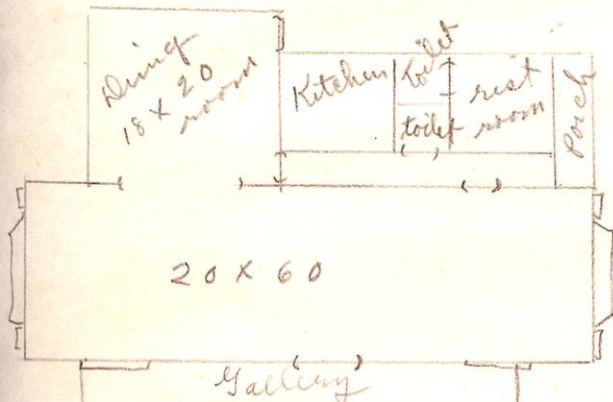 Dining
18 X 20
room
Kitchen
Toilet
toilet
rest
room
Porch
20 X 60
Gallery